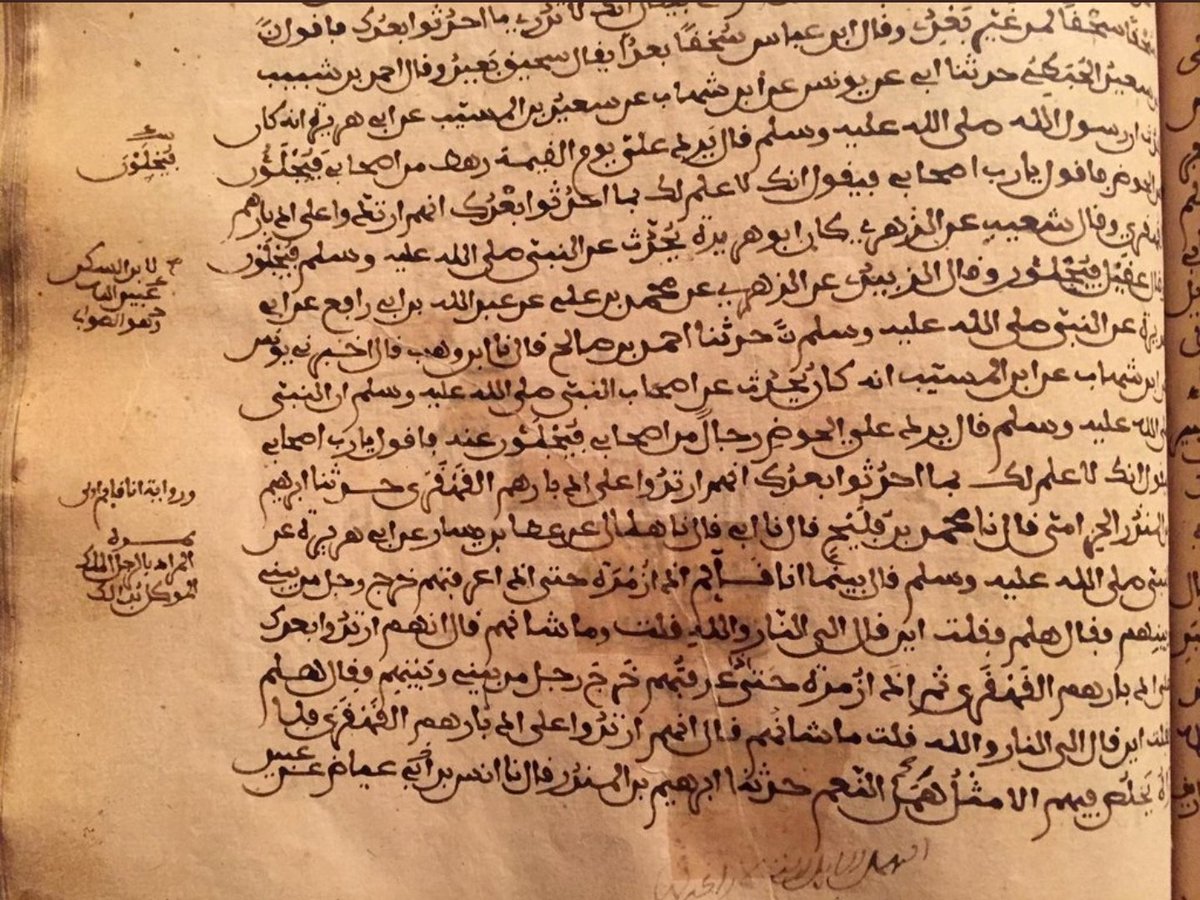 فيقال انك لا تدري ما احدثوا بعدك فاقول
سحقا سحقا لمن غير بعدي وقال ابن عباس سحقا بعدا يقال سحيق بعيد وقال احمد بن شبيب
بن سعيد الحبطي حدثنا ابي عن يونس عن ابن شهاب عن سعيد بن المسيب عن ابي هريرة انه كان
ان رسول الله صلى الله عليه وسلم قال يرد علي يوم القيمة رهط من اصحابي فيجلون
عن الحوض فاقول يا رب اصحابي فيقول انك لا علم لك بما احدثوا بعدك انهم ارتدوا على ادبارهم
القهقرى وقال شعيب عن الزهري كان ابو هريرة يحدث عن النبي صلى الله عليه وسلم فيجلون
وقال عقيل فيحلئون وقال الزبيدي عن الزهري عن محمد بن علي عن عبيد الله بن ابي رافع عن ابي
هريرة عن النبي صلى الله عليه وسلم حدثنا احمد بن صالح قال نا ابن وهب قال اخبرني يونس
عن ابن شهاب عن ابن المسيب انه كان يحدث عن اصحاب النبي صلى الله عليه وسلم ان النبي
صلى الله عليه وسلم قال يرد علي الحوض رجال من اصحابي فيحلئون عنه فاقول يا رب اصحابي
فيقول انك لا علم لك بما احدثوا بعدك انهم ارتدوا على ادبارهم القهقرى حدثنا ابرهيم
بن المنذر الحزامي قال نا محمد بن فليح قال نا ابي قال نا هلال عن عطا بن يسار عن ابي هريرة عن
النبي صلى الله عليه وسلم قال بينما انا قائم اذا زمرة حتى اذا عرفتهم خرج رجل من بيني
وبينهم فقال هلم فقلت اين قال الى النار والله قلت وما شانهم قال انهم ارتدوا بعدك
على ادبارهم القهقرى ثم اذا زمرة حتى اذا عرفتهم خرج رجل من بيني وبينهم فقال هلم
قلت اين قال الى النار والله قلت ما شانهم قال انهم ارتدوا على ادبارهم القهقرى فلا
اراه يخلص فيهم الا مثل همل النعم حدثنا ابرهيم بن المنذر قال نا انس بن ابي عياض عن عبيد
فيحلون
لابن السكن
عبيد الله
وهو الصواب
ورواية انا نايم
المراد بالرجل الملك
الموكل بذلك